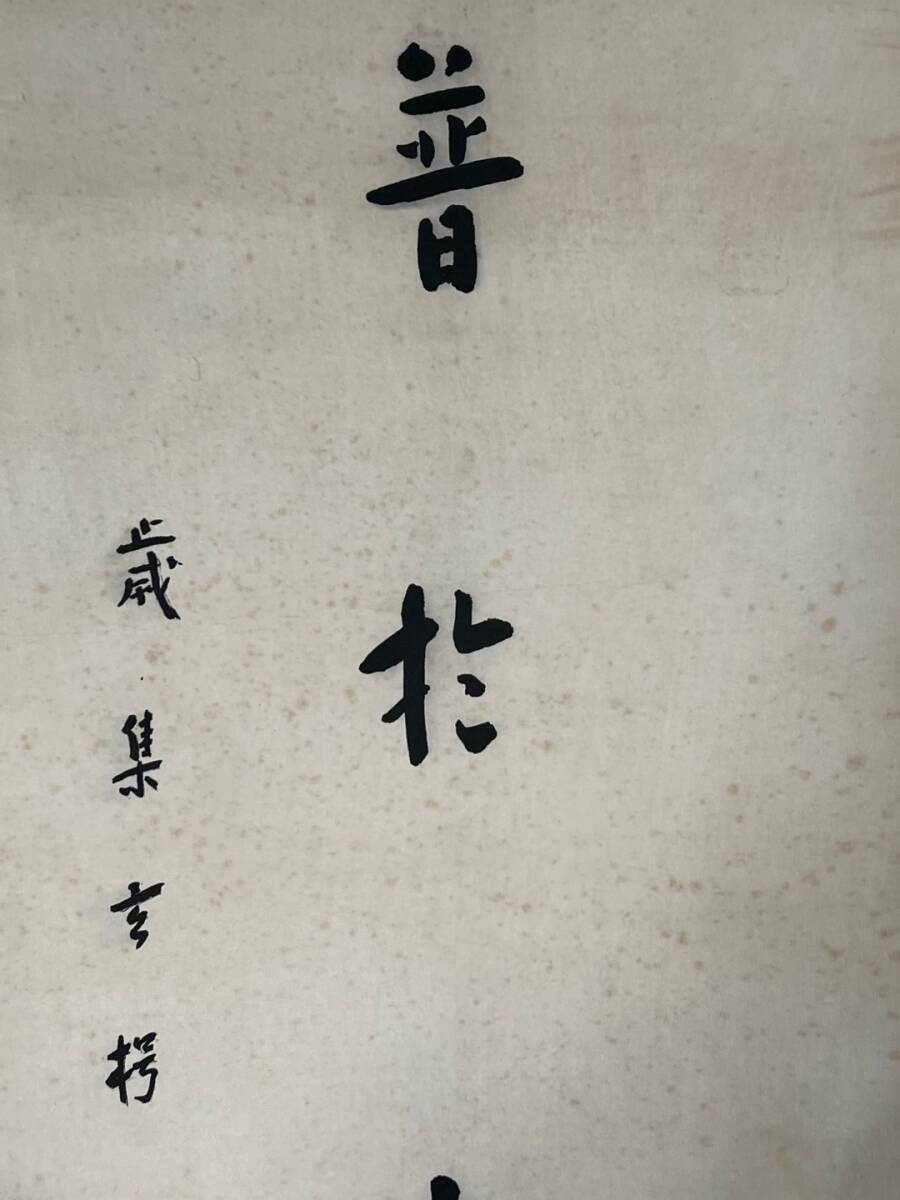 普於
歲集玄枵